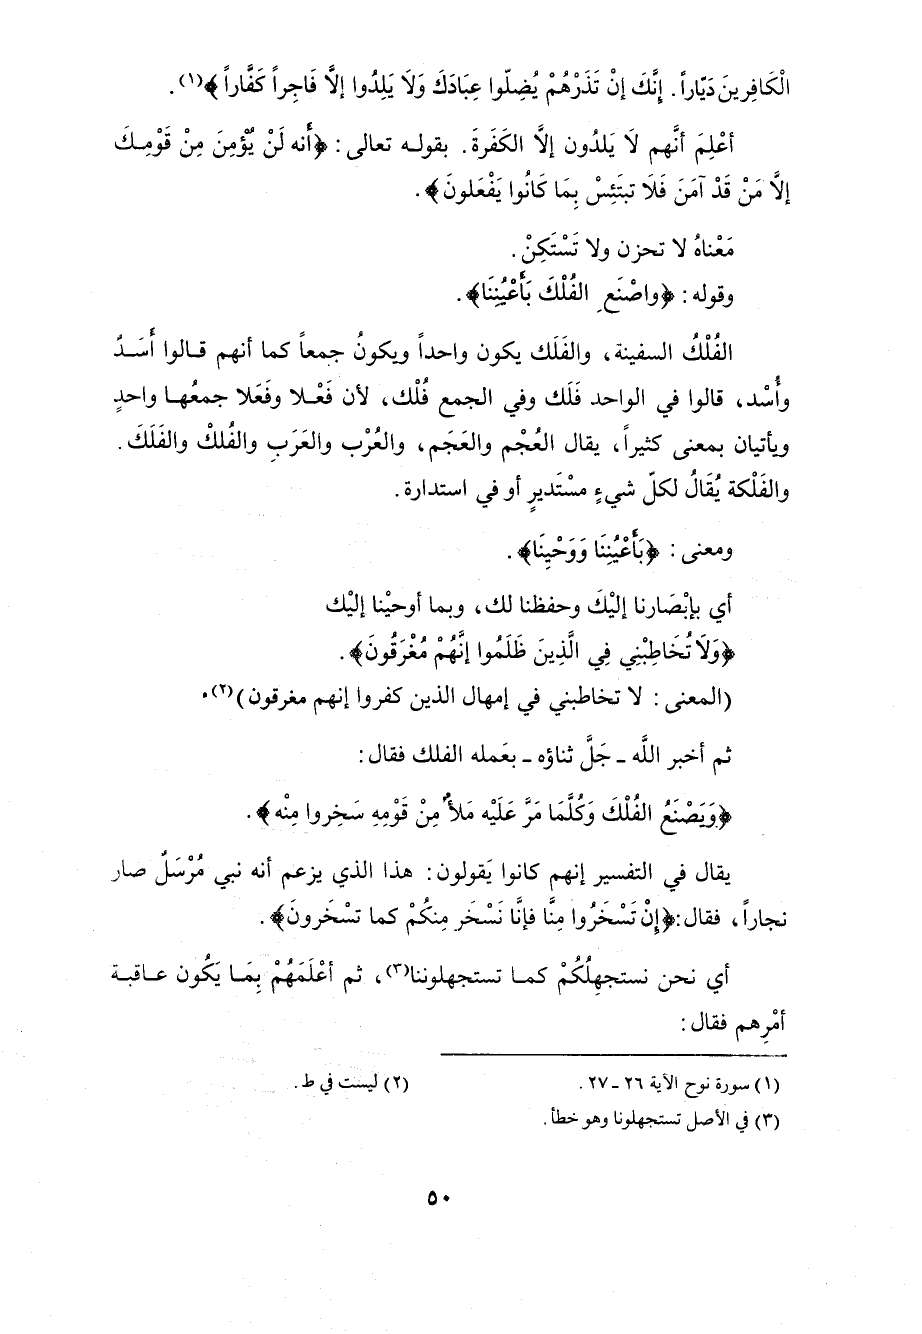 الْكَافِرِينَ دَيّاراً. إِنَّكَ إنْ تَذَرْهُمْ يُضِلّوا عِبَادَكَ وَلَا يَلِدُوا إلَّا فَاجِراً كَفَّاراً﴾(١).
أعْلِمَ أنَّهم لَا يَلدُون إلَّا الكَفَرةَ. بقولـه تعالى: ﴿أَنه لَنْ يُؤْمِنَ مِنْ قَوْمِـكَ
إلَّا مَنْ قَدْ آمَنَ فَلَا تبتَئِسْ بِمَا كَانُوا يَفْعَلونَ﴾.
مَعْناهُ لا تحزن ولا تَسْتَكِنْ.
وقوله: ﴿واصْنَعِ الفُلْكَ بَأَعْيُنِنَا﴾.
الفُلْكُ السفينة، والفَلَك يكون واحداً ويكونُ جمعاً كما أنهم قـالوا أَسَـدٌ
وأُسْد، قالوا في الواحد فَلَك وفي الجمع فُلْك، لأن فَعْـلا وفَعَلا جمعُهـا واحدٍ
ويأتيان بمعنى كثيراً، يقال العُجْم والعَجَم، والعُرْب والعَرَبِ والفُلكْ والفَلَكَ.
والفَلْكة يُقَالُ لكلّ شيءٍ مسْتَديرٍ أو في استدارة.
ومعنى: ﴿بَأَعْيُنِنَا وَوَحْينَا﴾.
أي بإِبْصَارنا إليْكَ وحفظنا لك، وبما أوحيْنا إليْك
﴿وَلَا تُخَاطِبْني فِي الَّذِينَ ظَلَمُوا إنَّهُمْ مُغْرَقُونَ﴾.
(المعنى: لا تخاطبني في إمهال الذين كفروا إنهم مغرقون)(٢).
ثم أخبر اللَّه ـ جَلَّ ثناؤه ـ بعَمله الفلك فقال:
﴿وَيَصْنَعُ الفُلْكَ وَكُلَّمَا مَرَّ عَلَيْه مَلأٌ مِنْ قَوْمِهِ سَخِروا مِنْه﴾.
يقال في التفسير إنهم كانوا يَقولون: هذا الذي يزعم أنه نبي مُرْسَلٌ صار
نجاراً، فقال:﴿إنْ تَسْخَرُوا مِنَّا فإنَّا نَسْخَر مِنكُمْ كما تسْخَرونَ﴾.
أي نحن نستجهِلُكُمْ كمـا تستجهلوننا(٣)، ثم أعْلَمَهُمْ بِمَـا يَكُون عـاقبة
أمْرِهم فقال:
(١) سورة نوح الآية ٢٦ ـ ٢٧. (٢) ليست في ط.
(٣) في الأصل تستجهلونا وهو خطأ.
٥٠